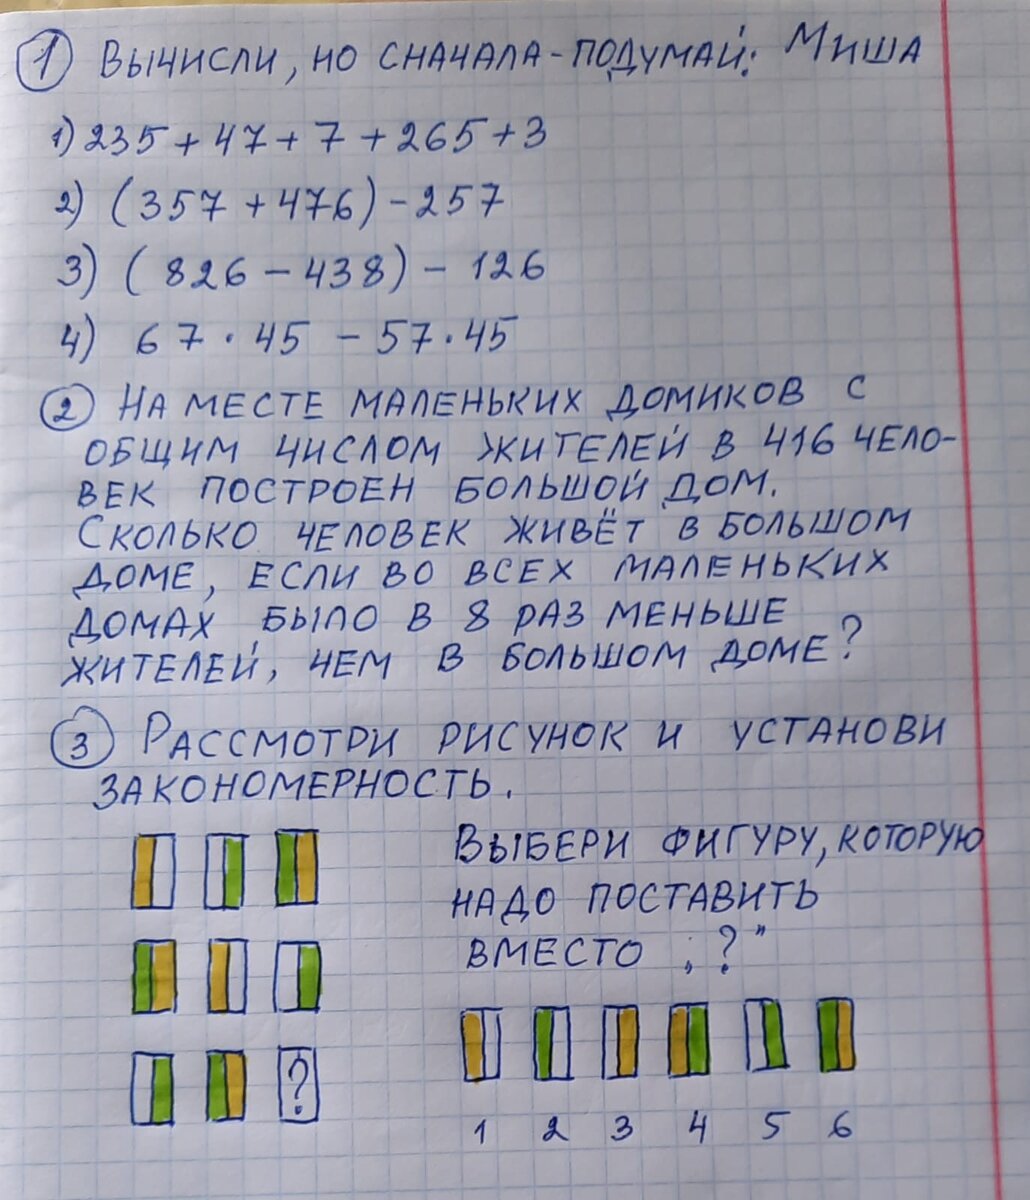 1 Вычисли, но сначала-подумай: Миша
1) 235 + 47 + 7 + 265 + 3
2) (357 + 476) - 257
3) (826 - 438) - 126
4) 67 · 45 - 57 · 45
2 На месте маленьких домиков с
общим числом жителей в 416 чело-
век построен большой дом.
Сколько человек живёт в большом
доме, если во всех маленьких
домах было в 8 раз меньше
жителей, чем в большом доме?
3 Рассмотри рисунок и установи
закономерность.
Выбери фигуру, которую
надо поставить
вместо „?"
?
1 2 3 4 5 6